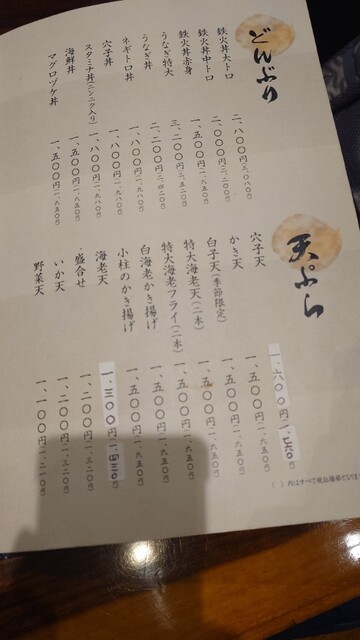 どんぶり
鉄火丼大トロ 二、八〇〇円(三、〇八〇)
鉄火丼中トロ 二、〇〇〇円(二、二〇〇)
鉄火丼赤身 一、五〇〇円(一、六五〇)
うなぎ特大 三、二〇〇円(三、五二〇)
うなぎ丼 二、二〇〇円(二、四二〇)
ネギトロ丼 一、八〇〇円(一、九八〇)
穴子丼 一、八〇〇円(一、九八〇)
スタミナ丼(ニンニク入り) 一、八〇〇円(一、九八〇)
海鮮丼 一、五〇〇円(一、六五〇)
マグロヅケ丼 一、五〇〇円(一、六五〇)
天ぷら
穴子天 一、六〇〇円(一、七六〇)
かき天 一、五〇〇円(一、六五〇)
白子天(季節限定) 一、五〇〇円(一、六五〇)
特大海老天(二本) 一、五〇〇円(一、六五〇)
特大海老フライ(二本) 一、五〇〇円(一、六五〇)
白海老かき揚げ 一、五〇〇円(一、六五〇)
小柱のかき揚げ 一、五〇〇円(一、六五〇)
海老天 一、三〇〇円(一、四三〇)
盛合せ 一、二〇〇円(一、三二〇)
いか天 一、二〇〇円(一、三二〇)
野菜天 一、一〇〇円(一、二一〇)
( )内はすべて税込価格